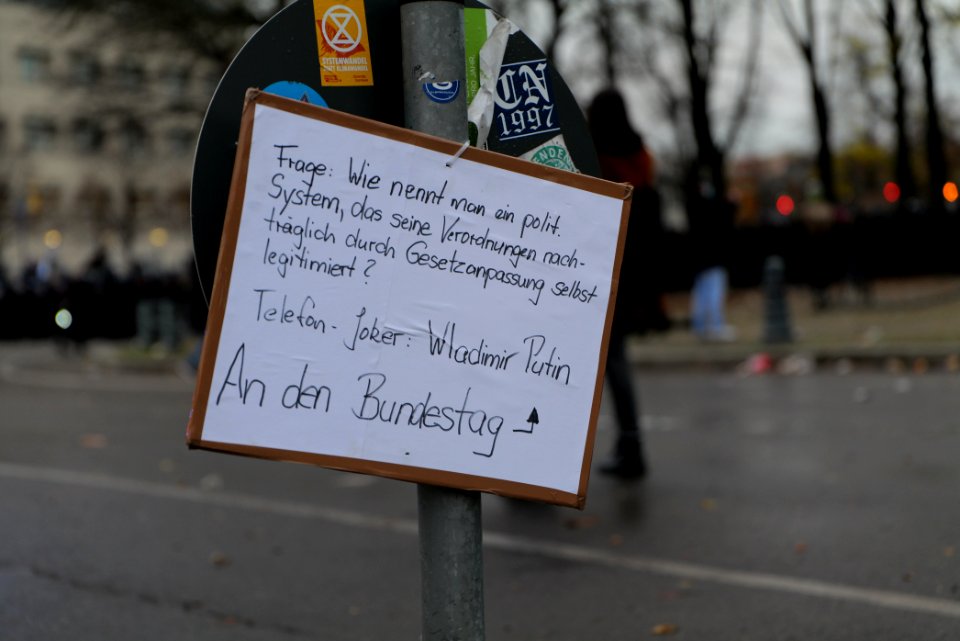 SYSTEMWANDEL
STATT KLIMAWANDEL
CN
1997
Frage: Wie nennt man ein polit.
System, das seine Verordnungen nach-
träglich durch Gesetzanpassung selbst
legitimiert?
Telefon-Joker: Wladimir Putin
An den Bundestag